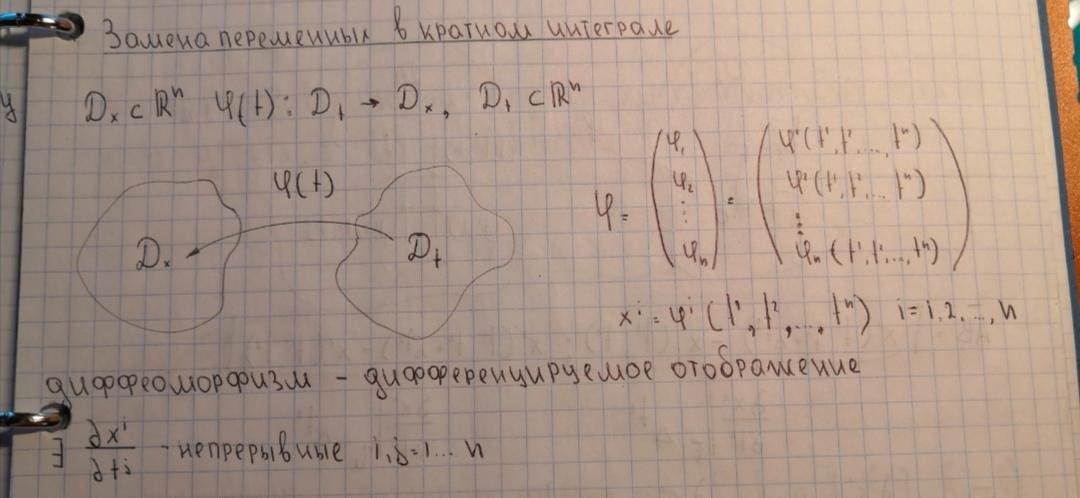 Замена переменных в кратном интеграле
у
D_x ⊂ ℝⁿ φ(t): D_t → D_x, D_t ⊂ ℝⁿ
φ(t)
D_x
D_t
φ = (φ₁ φ₂ ⋮ φₙ) = (φ¹(t¹, t², ..., tⁿ) φ²(t¹, t², ... tⁿ) ⋮ φₙ(t¹, t², ..., tⁿ))
xⁱ = φⁱ(t¹, t², ..., tⁿ) i = 1, 2, ..., n
диффеоморфизм - дифференцируемое отображение
∃ ∂xⁱ/∂tʲ - непрерывные i, j = 1 ... n